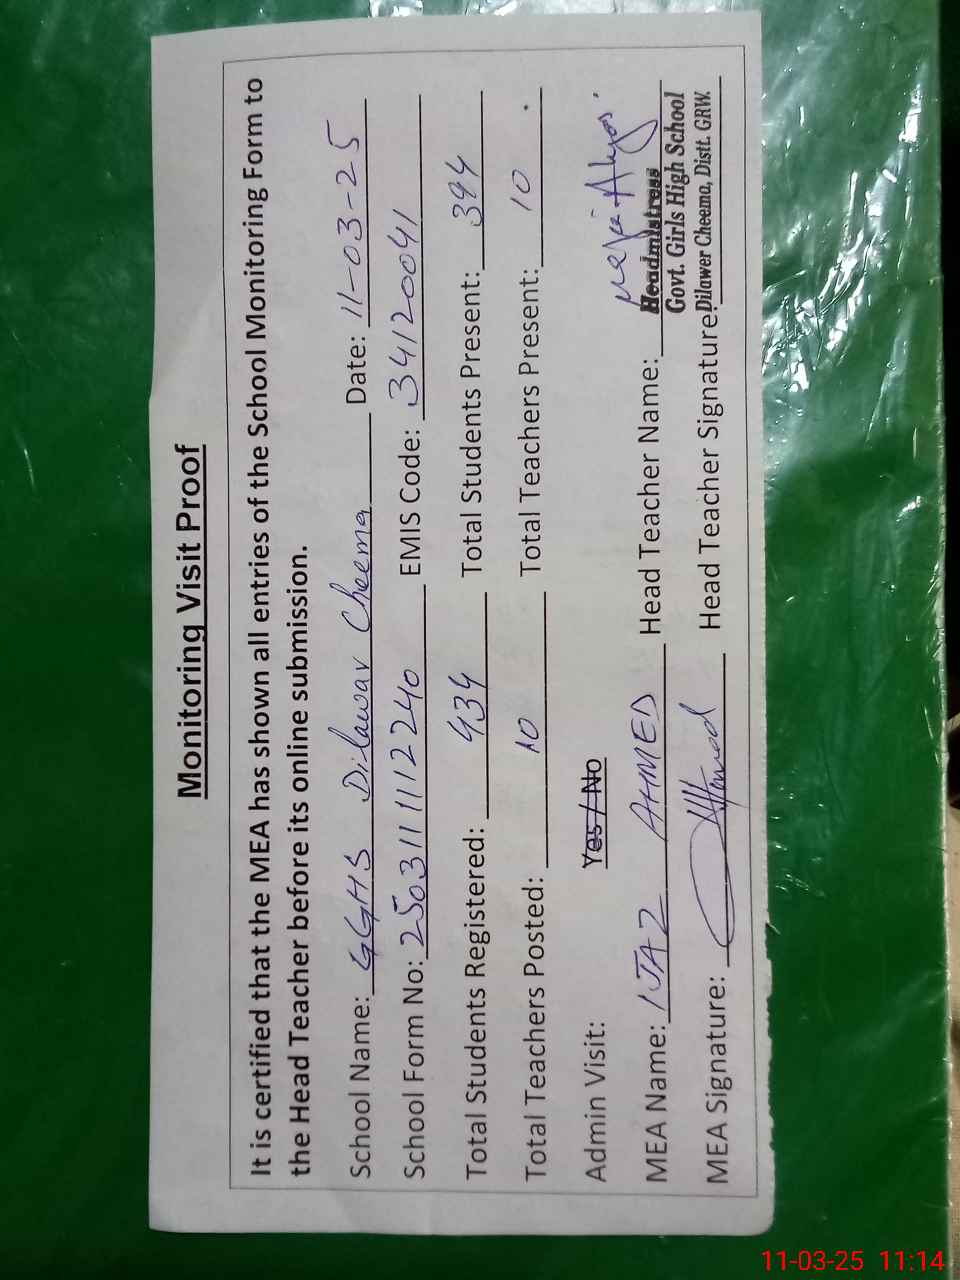 Monitoring Visit Proof
It is certified that the MEA has shown all entries of the School Monitoring Form to
the Head Teacher before its online submission.
School Name: GGHS Dilawar Cheema Date: 11-03-25
School Form No: 250311112240 EMIS Code: 34120041
Total Students Registered: 434 Total Students Present: 394
Total Teachers Posted: 10 Total Teachers Present: 10
Admin Visit: Yes / No
MEA Name: IJAZ AHMED Head Teacher Name:
Headmistress
Govt. Girls High School
MEA Signature: Head Teacher Signature:
Dilawer Cheema, Distt. GRW.
11-03-25 11:14